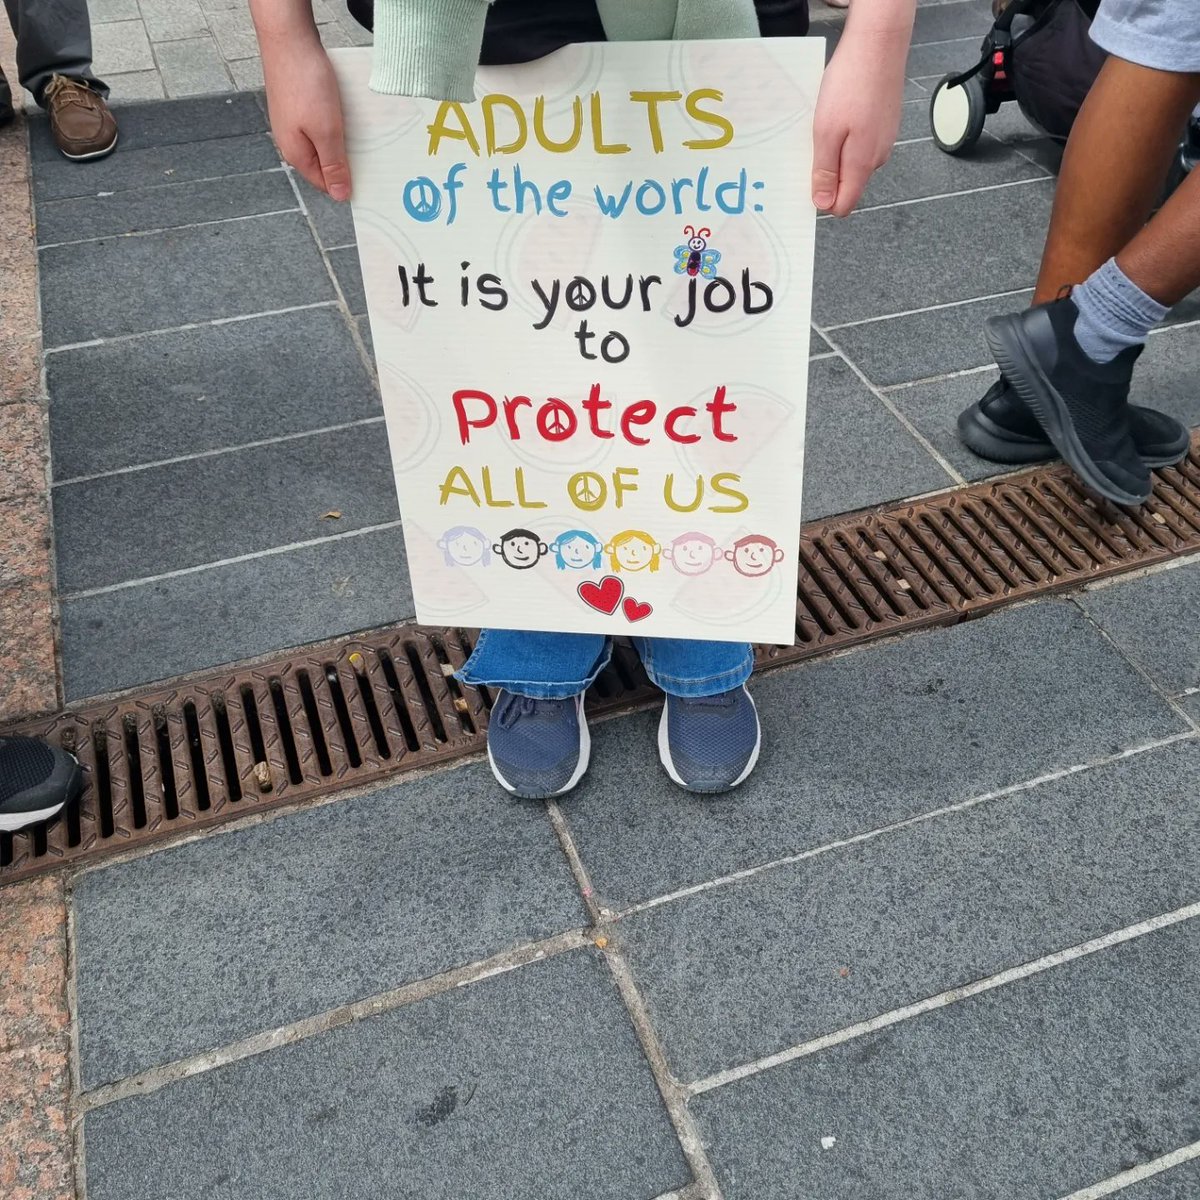 ADULTS
of the world:
It is your job
to
Protect
ALL OF US